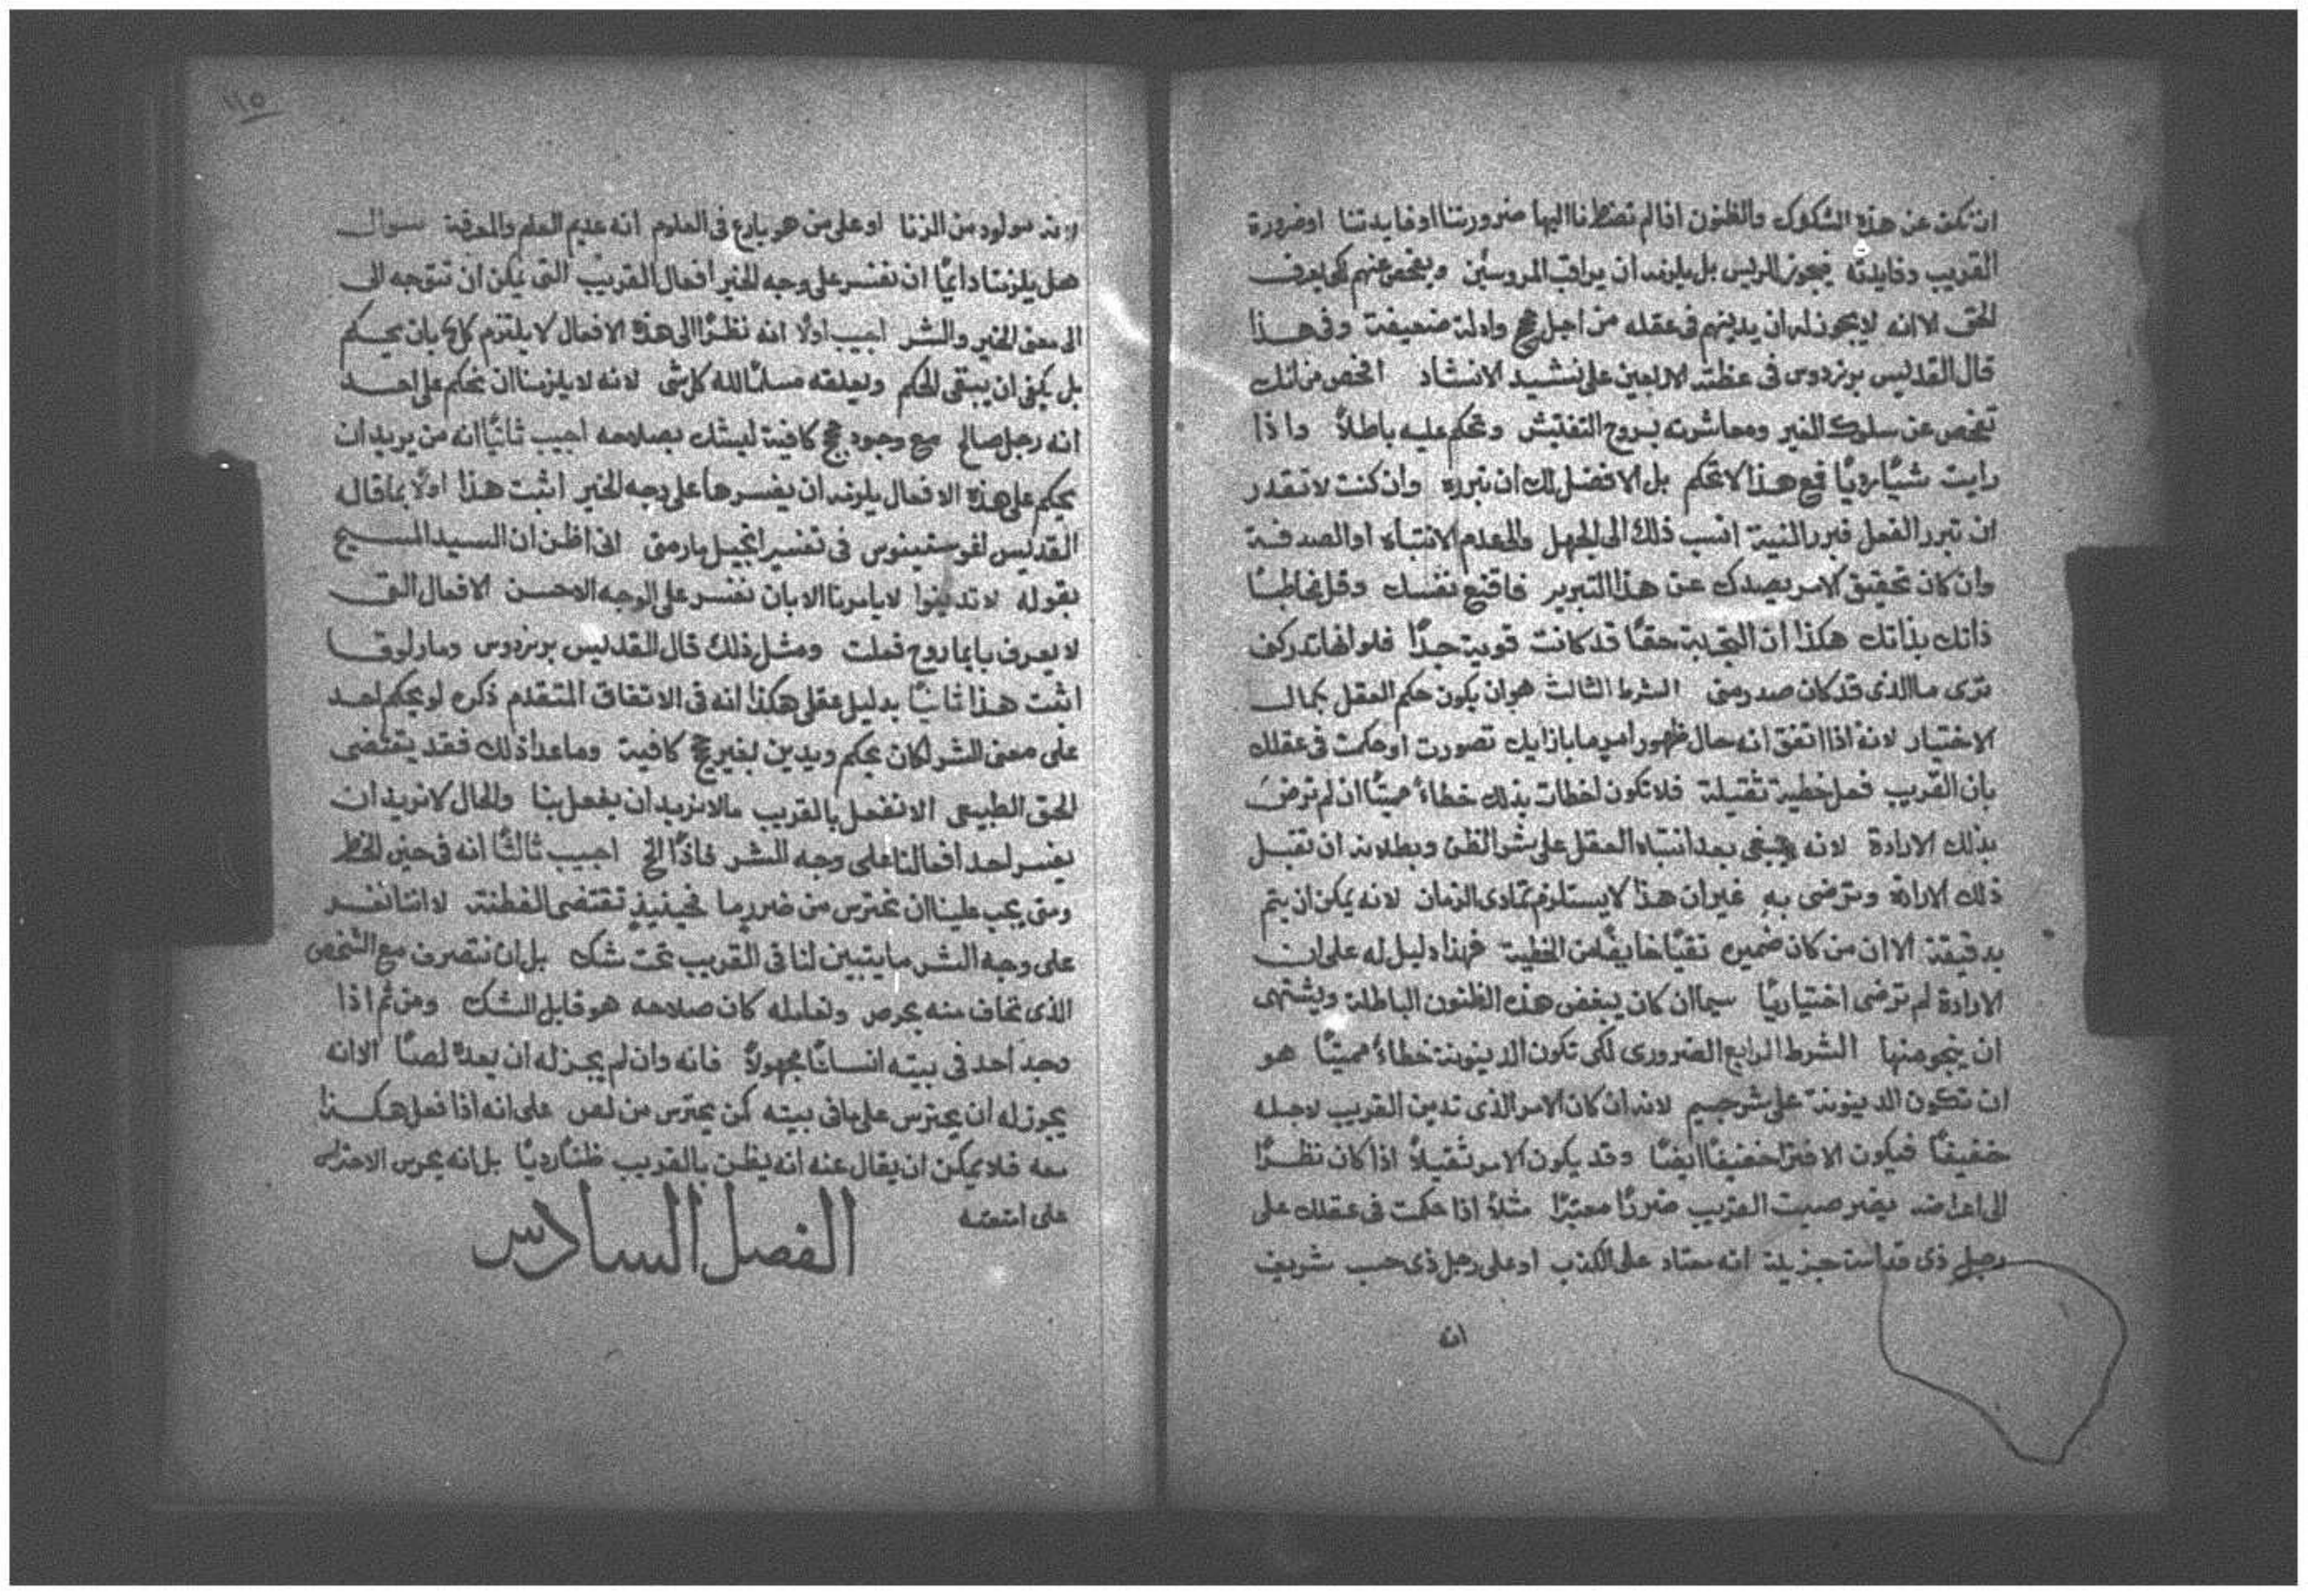 ان نكف عن هذه الشكوك والظنون اذا لم تضطرنا اليها ضرورتنا او فايدتنا او ضرورة
القريب وفايدته فيجوز للريس بل يلزمه ان يراقب المروسين ويفحص عنهم لكي يعرف
الحق الا انه لا يجوز له ان يدينهم في عقله من اجل حجج وادلة ضعيفة وفي هذا
قال القديس برنردوس في عظته الاربعين على نشيد الانشاد افحص من انك
تفحص عن سلوك الغير ومعاشرته بروح التفتيش وتحكم عليه باطلاً واذا
رايت شيًا رديًا فمع هذا لا تحكم بل الافضل لك ان تبرره وان كنت لا تقدر
ان تبرر الفعل فبرر النية انسب ذلك الى الجهل والى عدم الانتباه او الصدفة
وان كان تحقيق الامر يصدك عن هذا التبرير فاقنع نفسك وقل مخاطبًا
ذاتك بذاتك هكذا ان التجربة حقًا قد كانت قوية جدًا فلو انها تدركني
ترى ما الذي قد كان صدر مني الشرط الثالث هو ان يكون حكم العقل بكمال
الاختيار لانه اذا اتفق انه حال ظهور امر ما بازايك تصورت او حكمت في عقلك
بان القريب فعل خطية ثقيلة فلا تكون اخطات بذلك خطاءً مميتًا ان لم ترضَ
بذلك الارادة لانه ينبغي بعد انتباه العقل على شر الظن وبطلانه ان تقبل
ذلك الارادة وترضى به غير ان هذا لا يستلزم تمادي الزمان لانه يمكن ان يتم
بدقيقة الا ان من كان ضميره تقيًا خايفًا من الخطية فهذا دليل له على ان
الارادة لم ترضى اختياريًا سيما ان كان يبغض هذه الظنون الباطلة ويشتهي
ان ينجو منها الشرط الرابع الضروري لكي تكون الدينونة خطاءً مميتًا هو
ان تكون الدينونة على شر جسيم لانه ان كان الامر الذي تدين القريب لاجله
خفيفًا فيكون الافترا خفيفًا ايضًا وقد يكون الامر ثقيلاً اذا كان نظرًا
الى اعراضه يضر صيت القريب ضررًا معتبرًا مثلاً اذا حكمت في عقلك على
رجل ذي قداسة جزيلة انه معتاد على الكذب او على رجل ذي حسب شريف
انه
١١٥
انه مولود من الزنا او على من هو بارع في العلوم انه عديم العلم والمعرفة سوال
هل يلزمنا دايمًا ان نفسر على وجه الخير افعال القريب التي يمكن ان تتوجه الى
الى معنى الخير والشر اجيب اولاً انه نظرًا الى هذه الافعال لا يلتزم بان يحكم
بل يكفي ان يبقى الحكم ويعلقه مسلمًا لله كل شي لانه لا يلزمنا ان نحكم على احد
انه رجل صالح مع وجود حجج كافية ليشك بصلاحه اجيب ثانيًا انه من يريد ان
يحكم على هذه الافعال يلزمه ان يفسرها على وجه الخير اثبت هذا اولاً بما قاله
القديس اغوستينوس في تفسير انجيل مار متى اني اظن ان السيد المسيح
بقوله لا تدينوا لا يامرنا الا بان نفسر على الوجه الاحسن الافعال التي
لا يعرف بايما روح فعلت ومثل ذلك قال القديس برنردوس ومار لوقا
اثبت هذا ثانيًا بدليل عقلي هكذا انه في الاتفاق المتقدم ذكره لو يحكم احد
على معنى الشر لكان يحكم ويدين بغير حجج كافية وما عدا ذلك فقد يقتضى
الحق الطبيعي الا نفعل بالقريب ما لا نريد ان يفعل بنا والحال لا نريد ان
يفسر احد افعالنا على وجه الشر فاذًا الخ اجيب ثالثًا انه في حين الخطر
ومتى يجب علينا ان نحترس من ضرر ما فحينيذٍ تقتضى الفطنة لا اننا نفسر
على وجه الشر ما يتبين لنا في القريب تحت شك بل ان نتصرف مع الشخص
الذي نخاف منه بحرص ونعامله كان صلاحه هو قابل الشك ومن ثم اذا
وجد احد في بيته انسانًا مجهولاً فانه وان لم يجز له ان يعده لصًا الا انه
يجوز له ان يحترس على ما في بيته كمن يحترس من لص على انه اذا فعل هكذا
معه فلا يمكن ان يقال عنه انه يظن بالقريب ظنًا رديًا بل انه يحرس الاحتراس
على امتعته
الفصل السادس